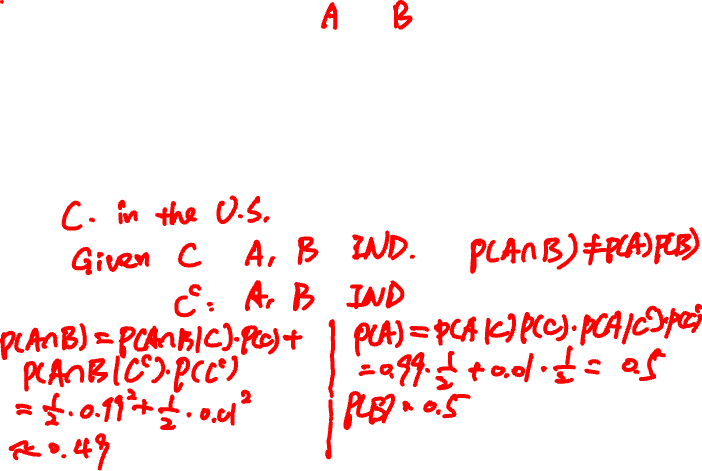 A B
C. in the U.S.
Given C A, B IND. P(A∩B) ≠ P(A)P(B)
Cᶜ: A, B IND
P(A∩B) = P(A∩B|C)·P(C) +
P(A∩B|Cᶜ)·P(Cᶜ)
= 1/2 · 0.99² + 1/2 · 0.01²
≈ 0.49
P(A) = P(A|C)P(C)·P(A|Cᶜ)·P(Cᶜ)
= 0.99 · 1/2 + 0.01 · 1/2 = 0.5
P(B) = 0.5